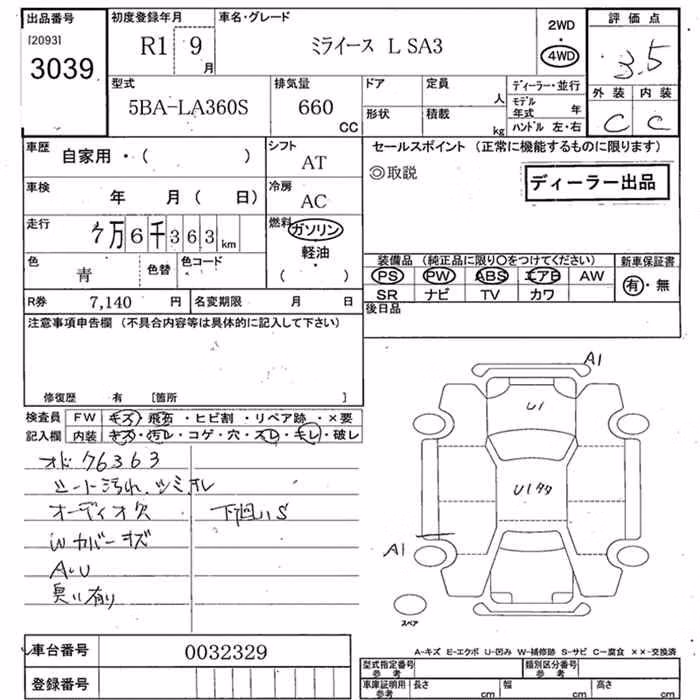 出品番号 初度登録年月 車名・グレード 2WD 評価点
[2093] R1 9月 ミライース L SA3 ・ 3.5
3039 4WD
型式 排気量 ドア 定員 人 ディーラー・並行 外装 内装
5BA-LA360S 660 CC 形状 積載 kg モデル年式 年 C C
ハンドル 左・右
車歴 自家用・( ) シフト AT セールスポイント (正常に機能するものに限ります)
◎取説
車検 年 月 ( 日) 冷房 AC ディーラー出品
走行 7万6千363km 燃料 ガソリン
軽油
・
( )
色 青 色替 色コード 装備品 (純正品に限り○をつけてください) 新車保証書
PS PW ABS エアB AW 有・無
R券 7,140 円 名変期限 月 日 SR ナビ TV カワ
注意事項申告欄 (不具合内容等は具体的に記入して下さい) 後日品
修復歴 有 [箇所 ]
検査員 FW キズ・飛石・ヒビ割・リペア跡・×要
記入欄 内装 キズ・汚レ・コゲ・穴・スレ・キレ・破レ
オド 76363
シート汚れ、シミ、スレ
オーディオ欠 下廻りS
Wカバーキズ
A・U
臭い有り
A1
U1
U1タタ
A1
スペア
A-キズ E-エクボ U-凹み W-補修跡 S-サビ C-腐食 ××-交換済
車台番号 0032329
型式指定番号 参考 類別区分番号 参考
登録番号 車庫証明用 参考 長さ cm 幅 cm 高さ cm